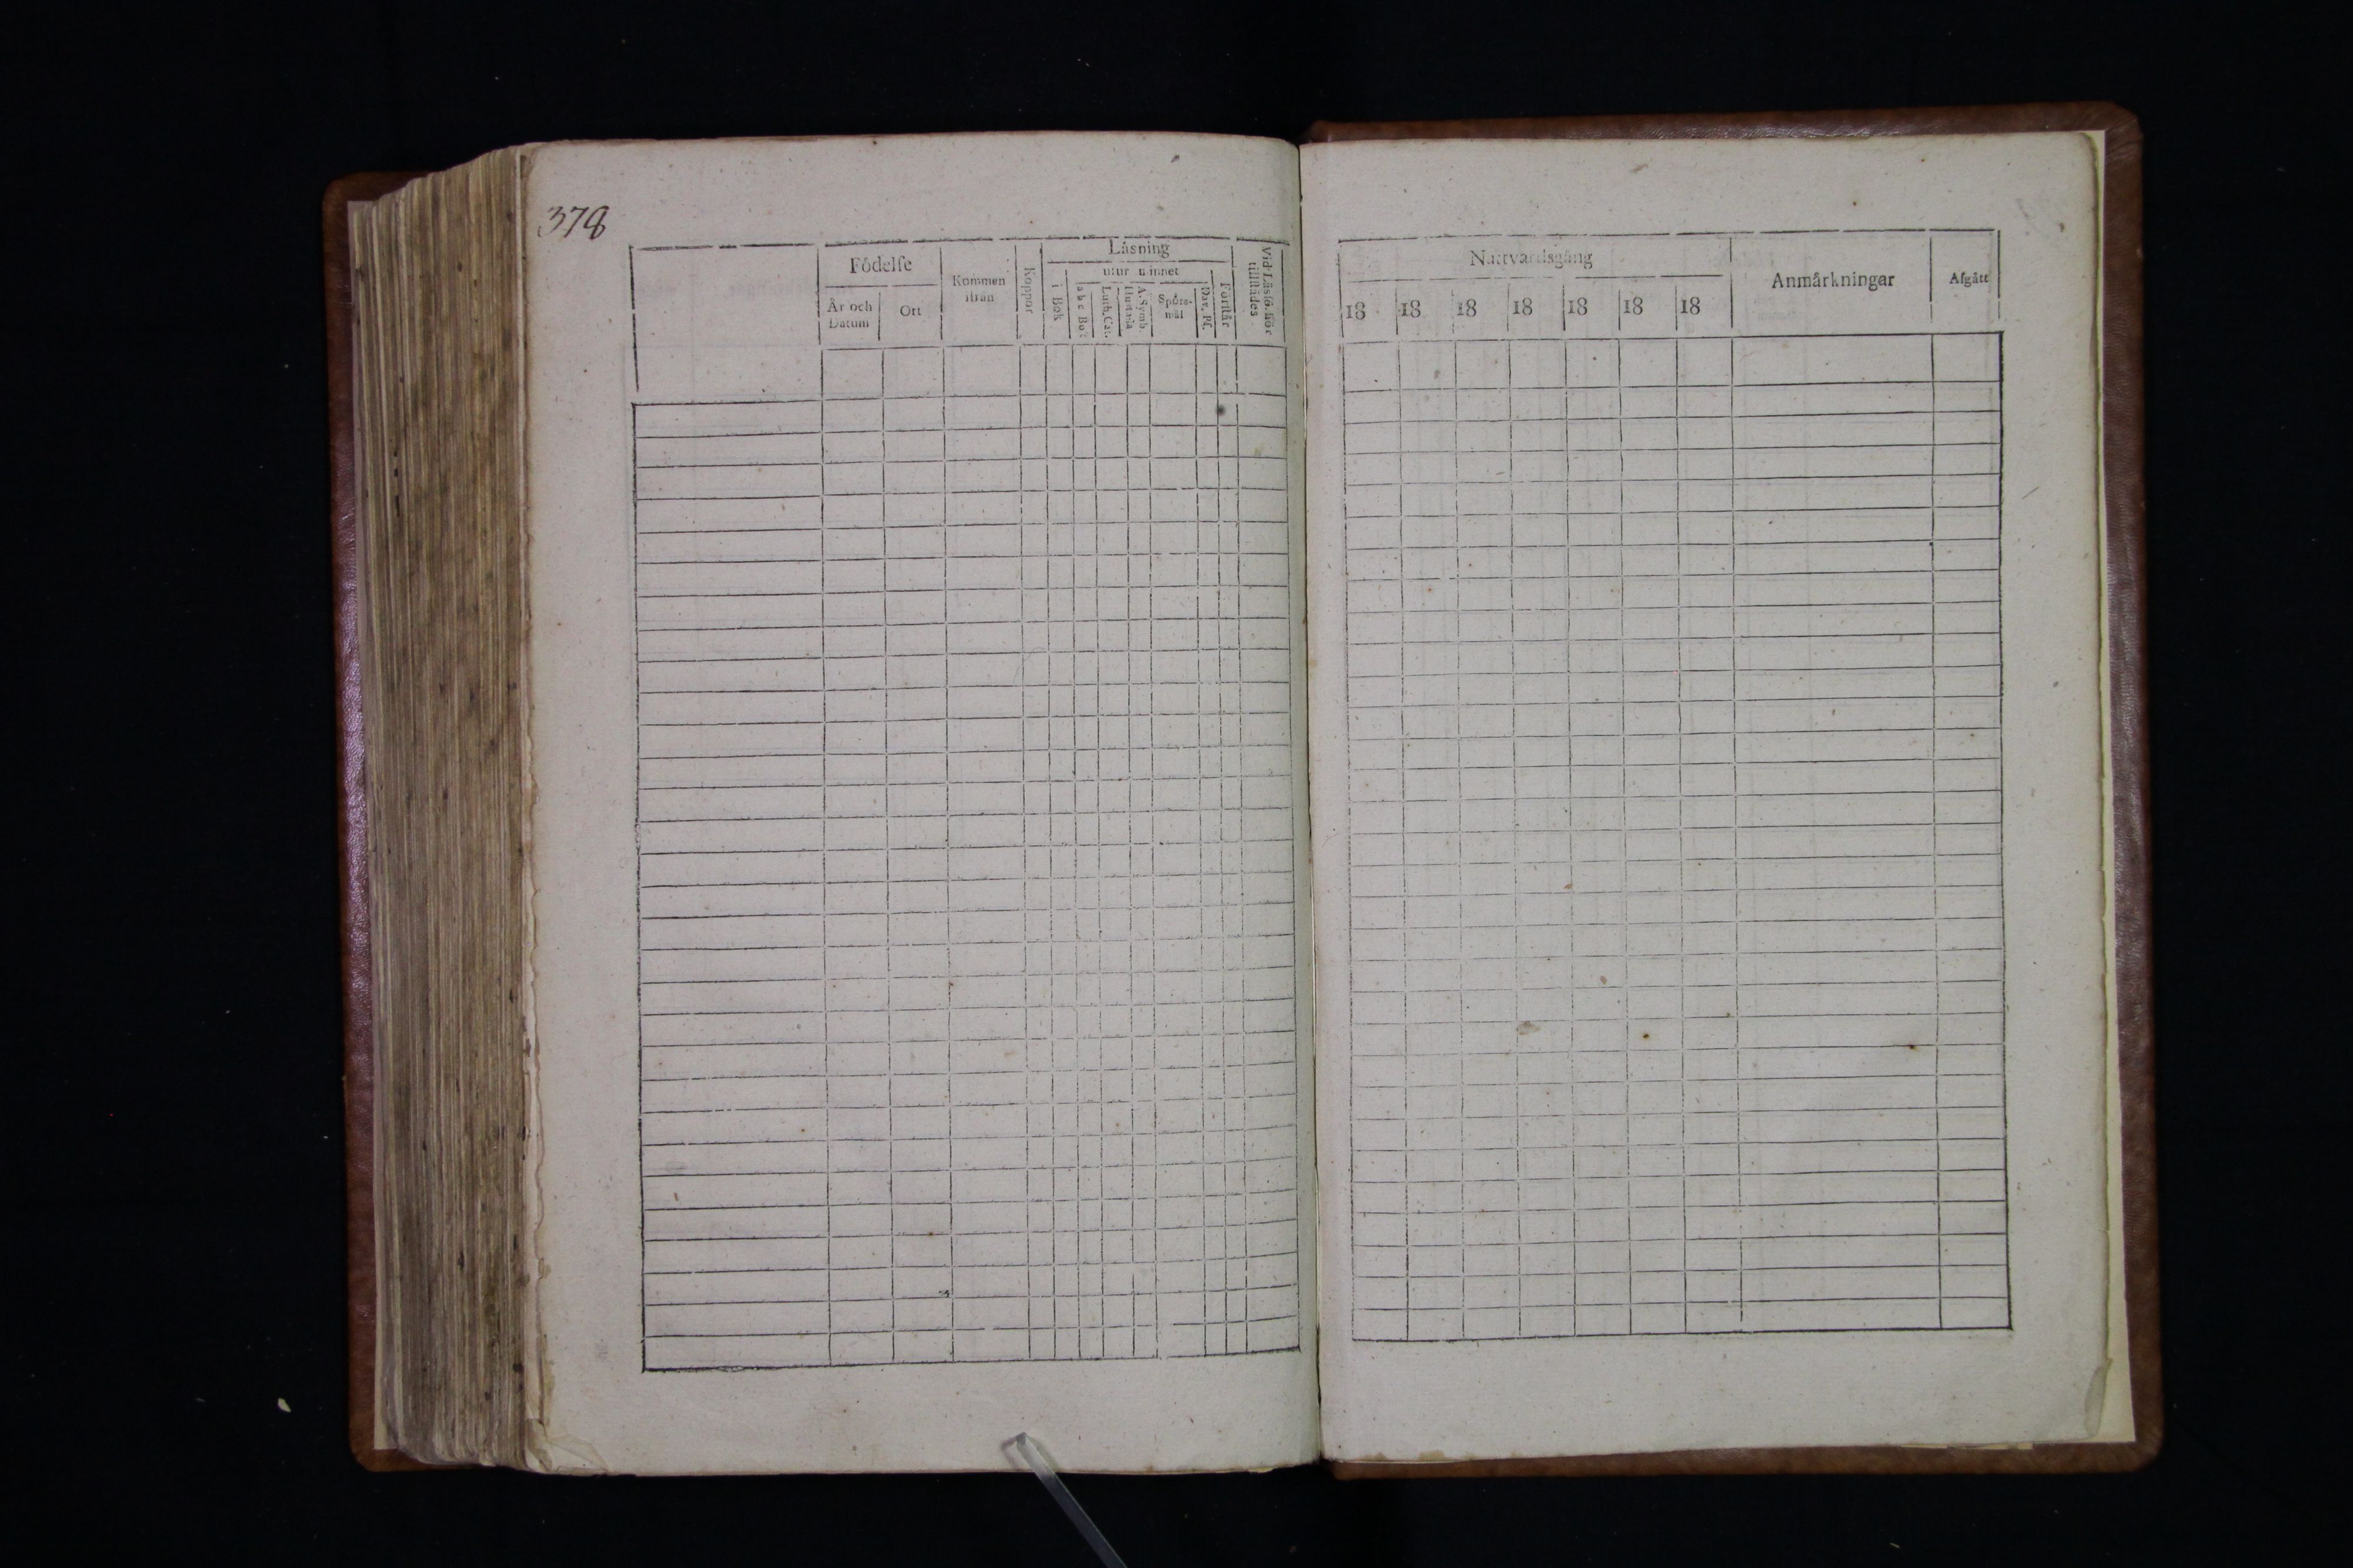 378
Födelse
År och
Datum
Ort
Kommen
ifrån
Koppor
Läsning
i Bok
utur minnet
abc Bok
Luth. Cat.
A. Symb.
Hustavla
Spörs-
mål
Dav. Ps.
Förstår
Vid Läsförhör
tillstädes
Nattvardsgång
18 18 18 18 18 18 18
Anmärkningar
Afgått